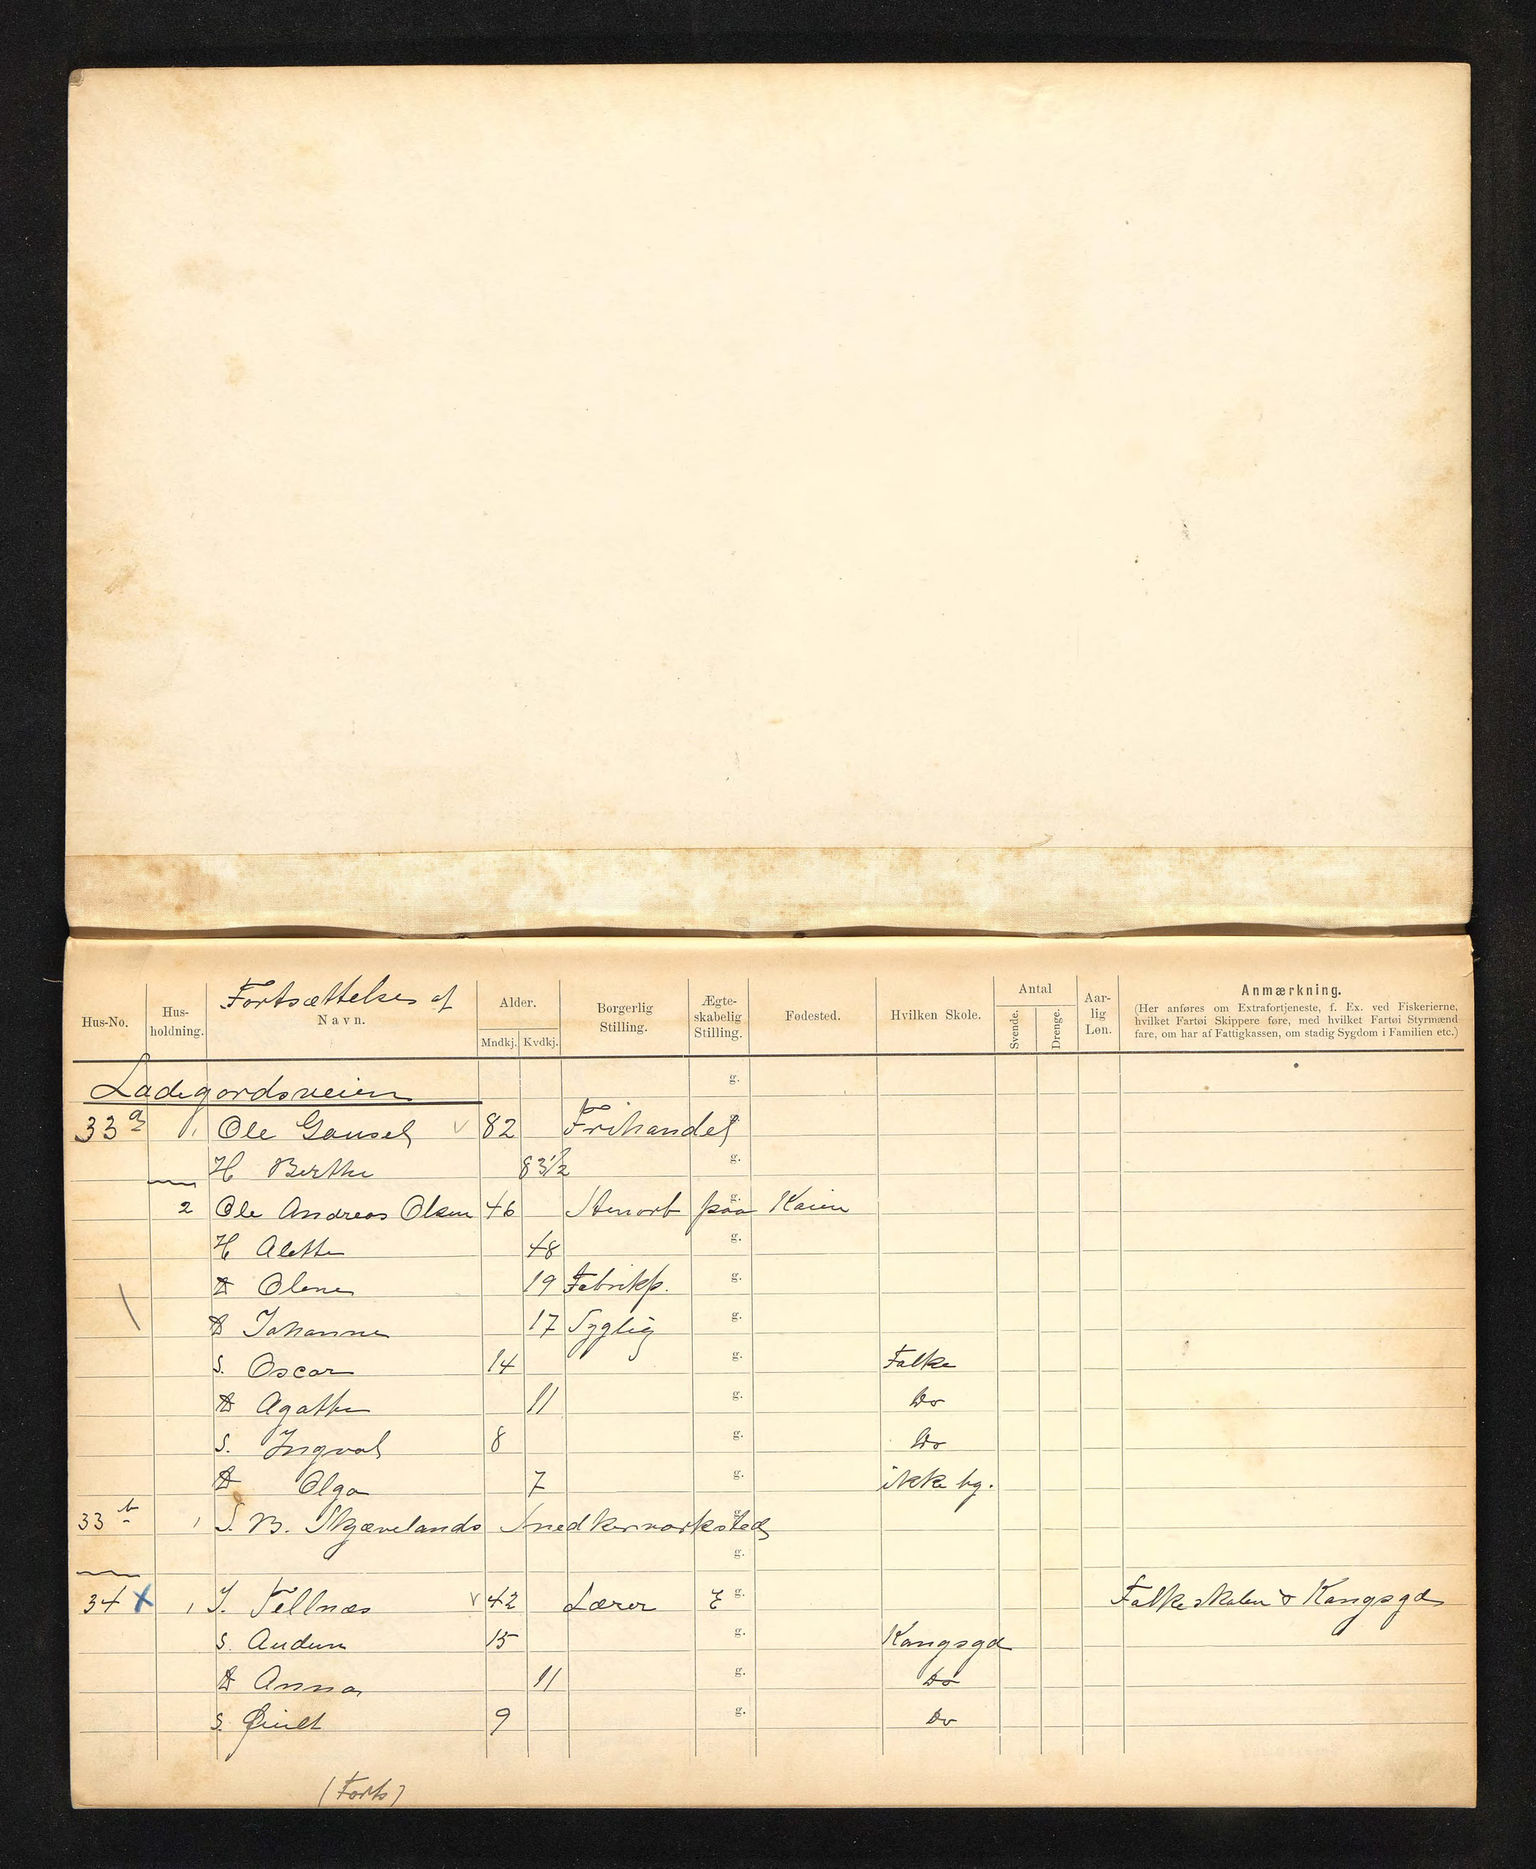 Fortsættelse af
Hus-No. Hus-holdning. Navn. Alder. Mndkj. Kvdkj. Borgerlig Stilling. Ægte-skabelig Stilling. Fødested. Hvilken Skole. Antal Svende. Drenge. Aar-lig Løn. Anmærkning.
(Her anføres om Extrafortjeneste, f. Ex. ved Fiskerierne,
hvilket Fartøi Skippere føre, med hvilket Fartøi Styrmænd
fare, om har af Fattigkassen, om stadig Sygdom i Familien etc.)
Ladegordsveien g.
33 a 1 Ole Gausel v 82 Frihandel g.
H Berthe 83 1/2 g.
2 Ole Andreas Olsen 46 Stenarb paa Kaien g.
H Alette 48 g.
D Olene 19 Fabrikp. g.
D Johanne 17 Syglig g.
S. Oscar 14 g. Folke
D Agathe 11 g. Do
S. Ingval 8 g. Do
D Olga 7 g. ikke beg.
33 b 1 S. B. Skjævelands Snedkerværksted g.
g.
34 x 1 J. Tellnæs v 42 Lærer E g. Folkeskolen & Kongsgd
S. Audun 15 g. Kongsgd
D Anna 11 g. Do
S. Øivit 9 g. Do
(Forts)